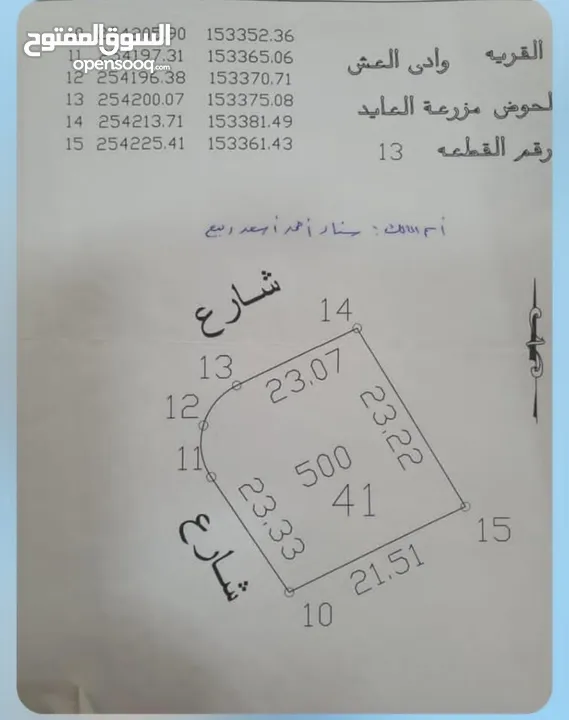 السوق المفتوح
opensooq.com
153352.36
11 254197.31 153365.06
12 254196.38 153370.71
13 254200.07 153375.08
14 254213.71 153381.49
15 254225.41 153361.43
القريه وادى العش
لحوض مزرعة العايد
رقم القطعه 13
شارع
14
13
23.07
12
23.22
11
500
41
23.33
شارع
15
21.51
10